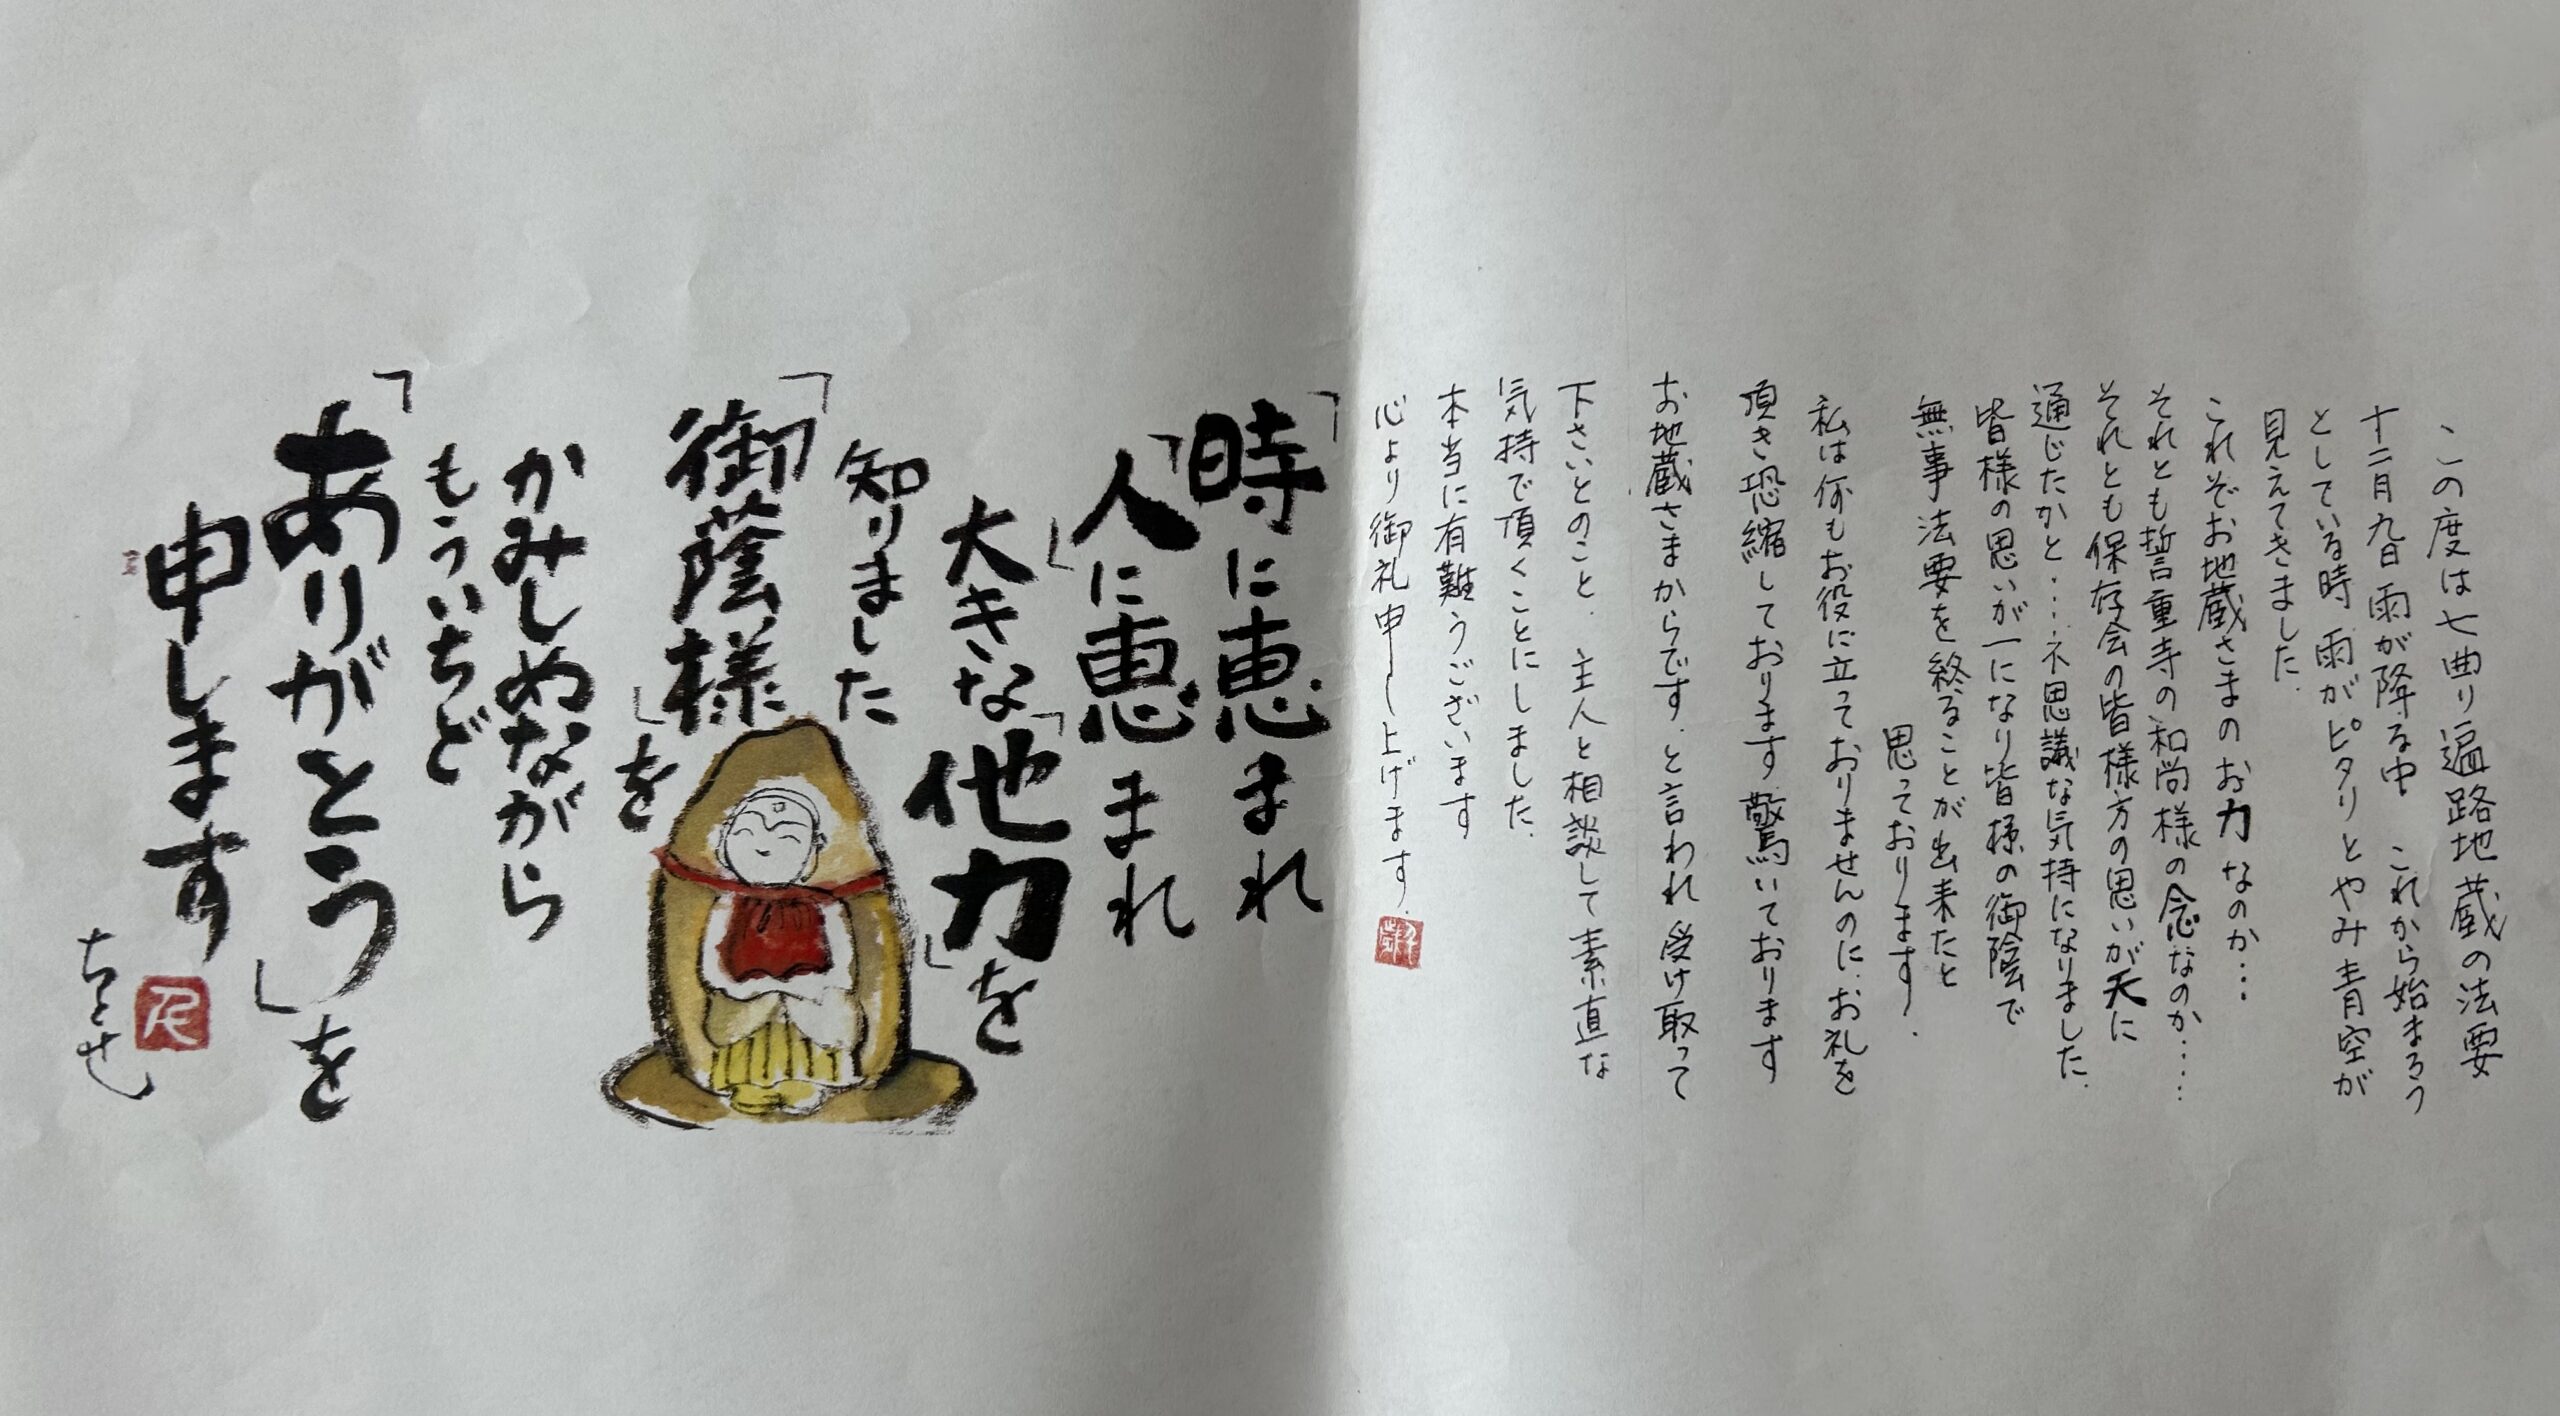 この度は七曲り遍路地蔵の法要
十二月九日雨が降る中 これから始まろう
としている時 雨がピタリとやみ青空が
見えてきました.
これぞお地蔵さまのお力なのか…
それとも誓重寺の和尚様の念なのか‥‥
それとも保存会の皆様方の思いが天に
通じたかと…不思議な気持になりました.
皆様の思いが一になり皆様の御陰で
無事法要を終ることが出来たと
思っております.
私は何もお役に立っておりませんのに.お礼を
頂き恐縮しております 驚いております
お地蔵さまからです.と言われ 受け取って
下さいとのこと.主人と相談して素直な
気持で頂くことにしました.
本当に有難うございます
心より御礼申し上げます.
「時に恵まれ
「人」に恵まれ
大きな「他力」を
知りました
「御蔭様」を
かみしめながら
もういちど
「ありがとう」を
申します
ちとせ